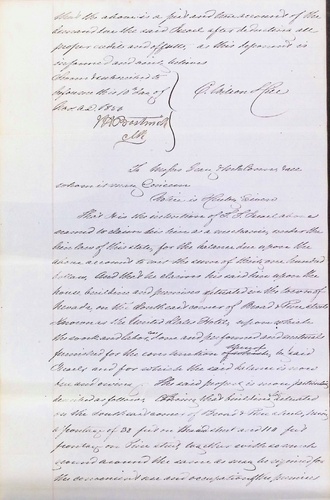 that the above is a just and true account of the
demand due the said Israel after deducting all
proper credits and offsetts, as this deponent is
informed and verily believes
Sworn & subscribed to
before me this 10th day of
A.D. 1860
Clk
To Messrs Gray & and all
whom it may Concern
Notice is Hereby Given
That it is the intention of above
named to claim his lien as a mechanic under the
lien law of this state, for the balance due upon the
above account to wit the sum of Thirty one hundred
dollars. And that he claims his said lien upon the
house buildings and premises situated in the town of
Nevada, on the South east corner of Broad & Pine streets
Known as the United States Hotel, upon which
the work and labor, was done and performed and material
furnished for the construction thereof by said
Israel and for which the said balance is now
due and owing. The said property is more particularly
described as follows. Being that building situated
on the South east corner of Broad & Pine streets, having
a frontage of 38 feet on Broad street and 110 feet
frontage on Pine street together with so much
ground around the same as may be required for
the convenient use and occupation of the premises